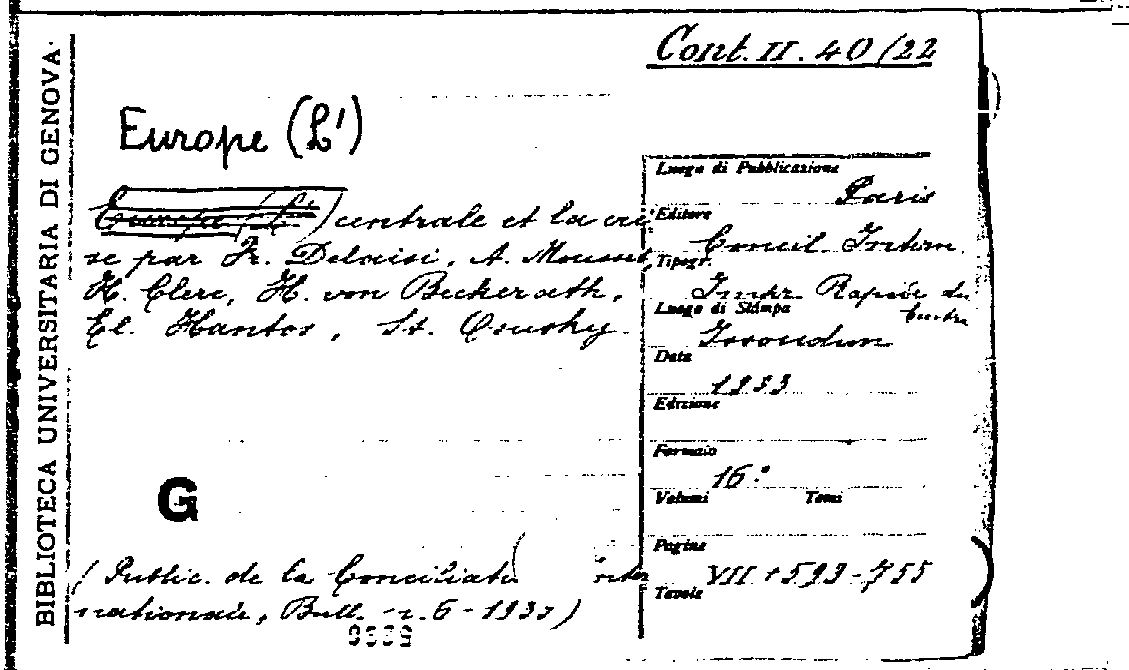 Cont. II. 40/22
BIBLIOTECA UNIVERSITARIA DI GENOVA
Europe (L')
Europa (L') centrale et la cri
se par Fr. Delaisi, A. Mousset,
H. Clerc, H. von Beckerath,
El. Hantos, St. Osusky.
G
( Public. de la Conciliati inter
nationale, Bull. n. 6 - 1933 )
Luogo di Pubblicazione
Paris
Editore
Concil. Intern.
Tipogr.
Impr. Rapide du
Centre
Luogo di Stampa
Issoudun
Data
1933
Edizione
Formato
16°
Volumi Tomi
Pagine
VII + 593-755
Tavole